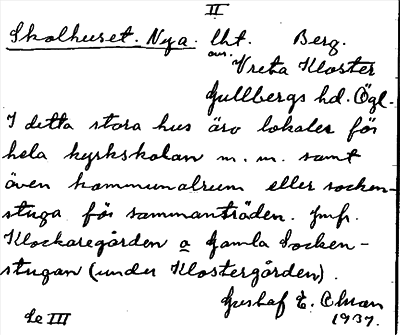 II
Skolhuset. Nya. lht. Berg.
Vreta Kloster
Gullbergs hd. Ögl.
I detta stora hus äro lokaler för
hela kyrkskolan m. m. samt
även kommunalrum eller socken-
stuga för sammanträden. Jmfr.
Klockaregården o Gamla Socken-
stugan (under Klostergården).
Gustaf E. Ekman
1937.
Se III